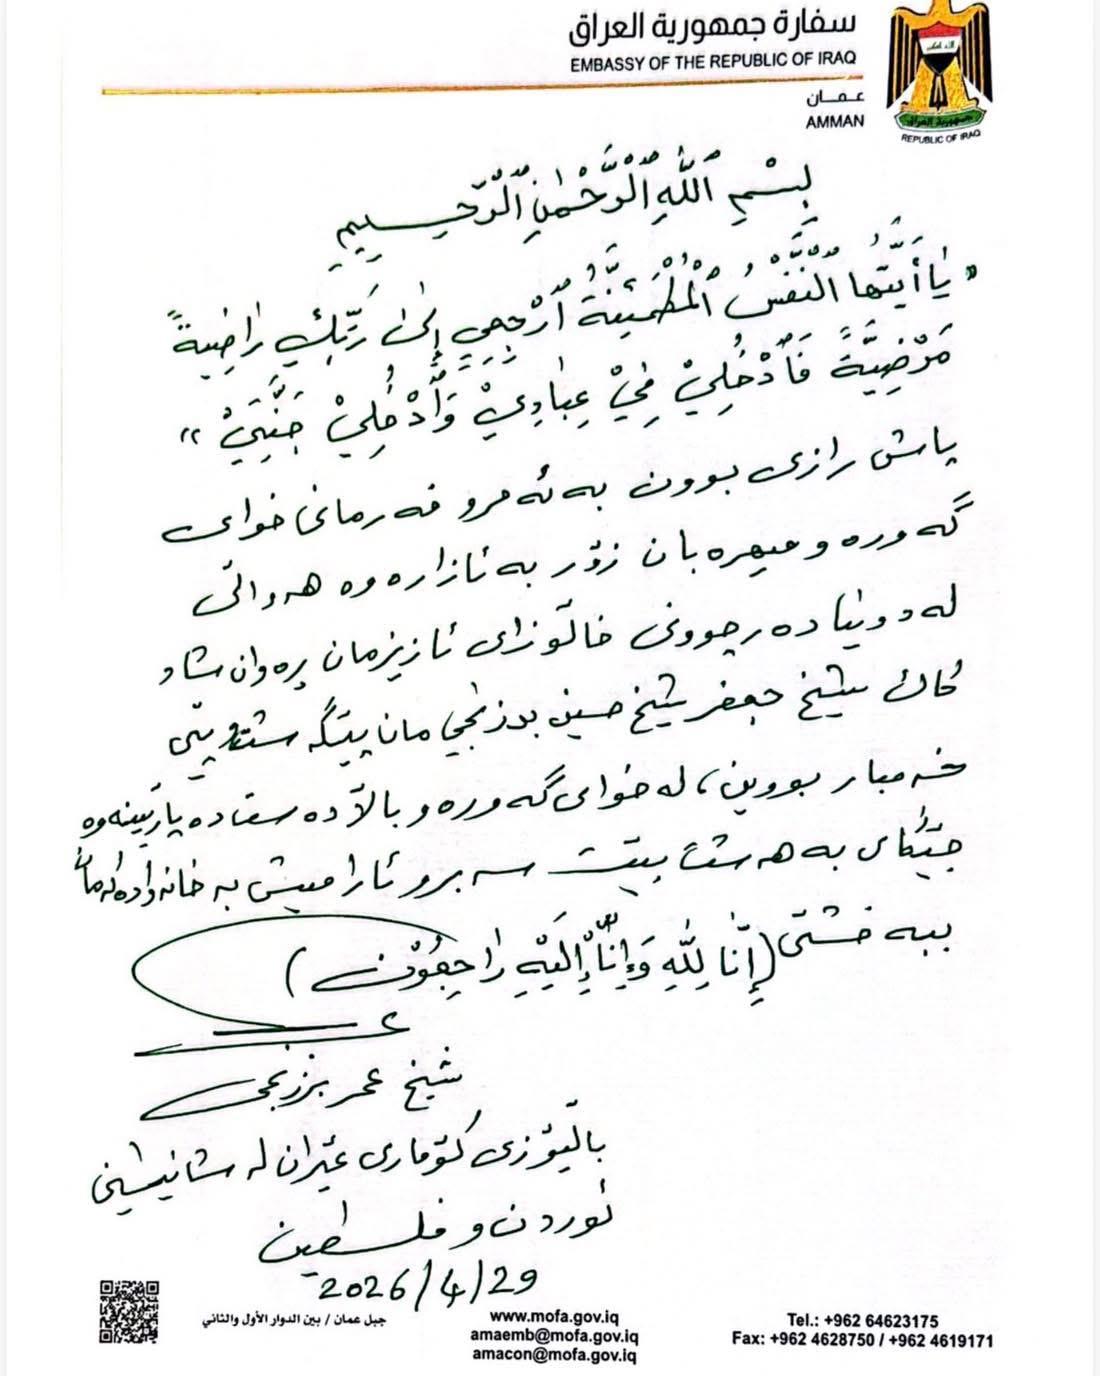 سفارة جمهورية العراق
EMBASSY OF THE REPUBLIC OF IRAQ
عمان
AMMAN
جمهورية العراق
REPUBLIC OF IRAQ
بِسْمِ ٱللَّهِ ٱلرَّحْمٰنِ ٱلرَّحِيمِ
« يٰأَيَّتُها ٱلنَّفْسُ ٱلْمُطْمَئِنَّةُ ٱرْجِعِي إِلىٰ رَبِّكِ رٰاضِيَةً
مَرْضِيَّةً فَٱدْخُلِيْ فِيْ عِبٰادِيْ وَٱدْخُلِيْ جَنَّتِيْ »
پاش رازی بوون به ئه مرو فه رمانی خوای
گه وره و میهره بان زۆر به ئازاره وه هه واڵی
له دونیا ده رچوونی خاڵۆزای ئازیزمان ره وان شاد
کاک شێخ جعفر شێخ حسین بەرزنجی مان پێگه شت پێی
خه مبار بووین، له خوای گه وره و بالا ده ست ده پارێینه وه
جێگای به هه شت بێت سه برو ئارامیش به خانه واده که مان
ببه خشێ (إِنّا لِلّٰهِ وَإِنّٰا إِلَيْهِ رٰاجِعُوْنَ)
شێخ عمر برزنجی
باڵیۆزی کۆماری عێراق له شانیشینی
ئوردن و فلسطین
2026/4/29
جبل عمان / بين الدوار الأول والثاني
www.mofa.gov.iq
amaemb@mofa.gov.iq
amacon@mofa.gov.iq
Tel.: +962 64623175
Fax: +962 4628750 / +962 4619171